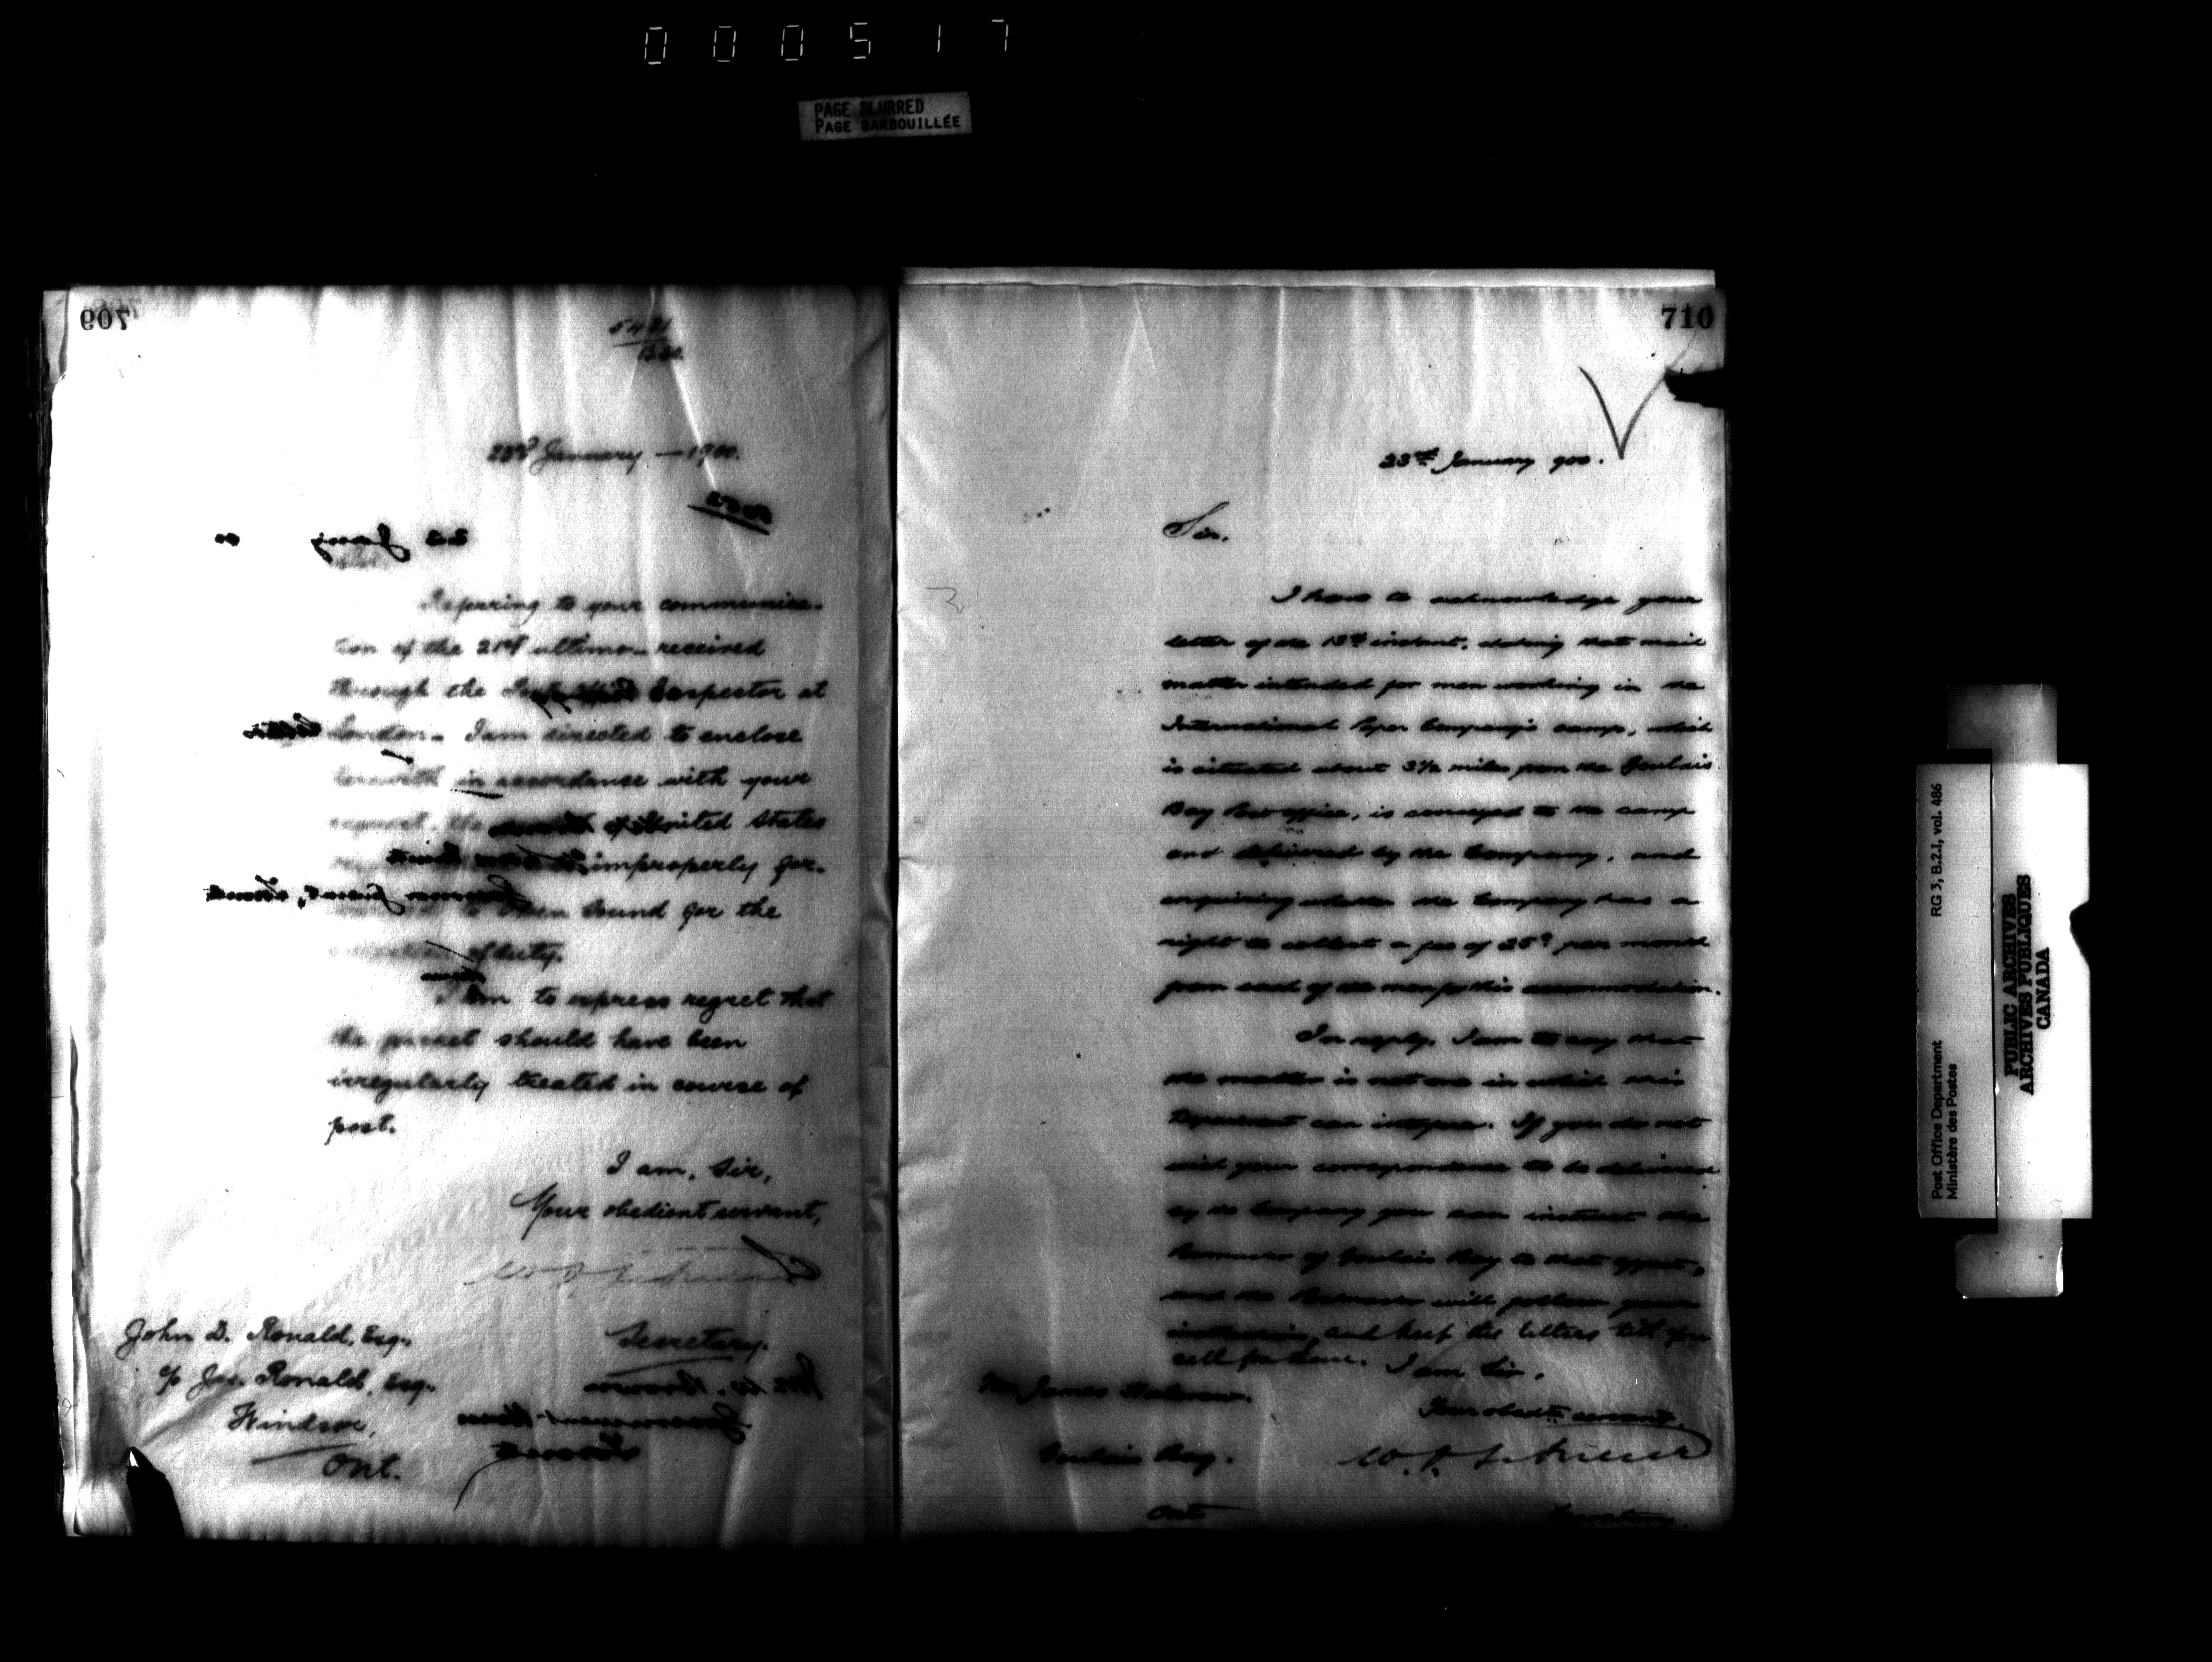 000517
PAGE BLURRED
PAGE BARBOUILLÉE
709
23rd January - 1900.
Referring to your communica-
tion of the 21st ultimo received
through the Inspector at
London. I am directed to enclose
herewith in accordance with your
request, the United States
improperly for-
to Owen Sound for the
of duty.
I am to express regret that
the packet should have been
irregularly treated in course of
post.
I am, Sir,
Your obedient servant,
Secretary.
John D. Ronald, Esq.
c/o Jas. Ronald, Esq.
Windsor,
Ont.
710
23rd January 900.
Sir,
I have to acknowledge your
letter of the 13th instant, stating that mail
matter intended for men working in the
International Paper Company's camp, which
is situated about 3½ miles from the Goulais
Bay Post office, is conveyed to the camp
and delivered by the Company, and
enquiring whether the Company has a
right to collect a fee of 25c per month
from each of the men for this accommodation.
In reply, I am to say that
the matter is not one in which this
Department can interfere. If you do not
wish your correspondence to be delivered
by the Company you can instruct the
Postmaster of Goulais Bay to that effect,
and the Postmaster will follow your
instructions, and keep the letters till you
call for them. I am Sir,
Your obedt. servant,
Mr. James
Goulais Bay.
Ont
Secretary.
Post Office Department
Ministère des Postes
RG 3, B.2.1, vol. 486
PUBLIC ARCHIVES
ARCHIVES PUBLIQUES
CANADA